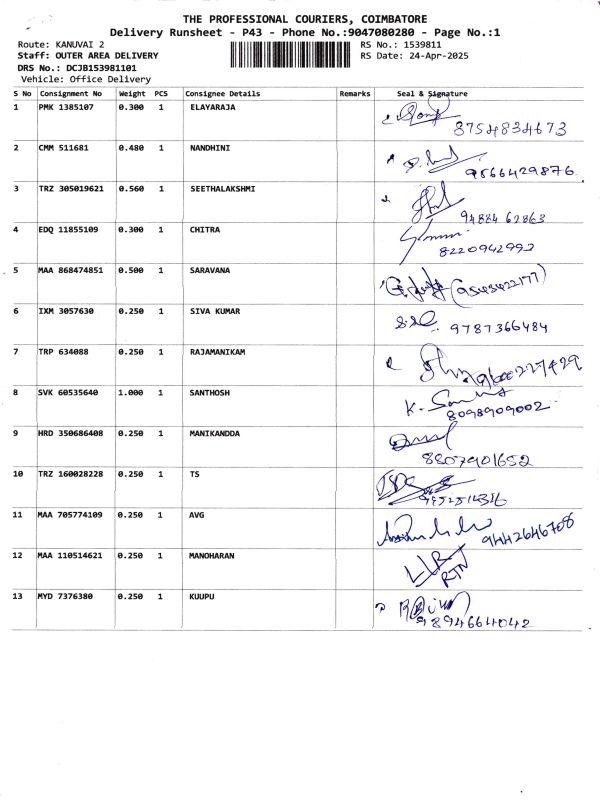 THE PROFESSIONAL COURIERS, COIMBATORE
Delivery Runsheet - P43 - Phone No.:9047080280 - Page No.:1
Route: KANUVAI 2 RS No.: 1539811
Staff: OUTER AREA DELIVERY RS Date: 24-Apr-2025
DRS No.: DCJB153981101
Vehicle: Office Delivery
S No Consignment No Weight PCS Consignee Details Remarks Seal & Signature
1 PMK 1385107 0.300 1 ELAYARAJA
8754834673
2 CMM 511681 0.480 1 NANDHINI
9566429876
3 TRZ 305019621 0.560 1 SEETHALAKSHMI
94884 62863
4 EDQ 11855109 0.300 1 CHITRA
8220942993
5 MAA 868474851 0.500 1 SARAVANA
6 IXM 3057630 0.250 1 SIVA KUMAR
9787366484
7 TRP 634088 0.250 1 RAJAMANIKAM
9600227429
8 SVK 60535640 1.000 1 SANTHOSH
8098909002
9 HRD 350686408 0.250 1 MANIKANDDA
8807901652
10 TRZ 160028228 0.250 1 TS
11 MAA 705774109 0.250 1 AVG
9442646708
12 MAA 110514621 0.250 1 MANOHARAN
RTN
13 MYD 7376380 0.250 1 KUUPU
9894664042